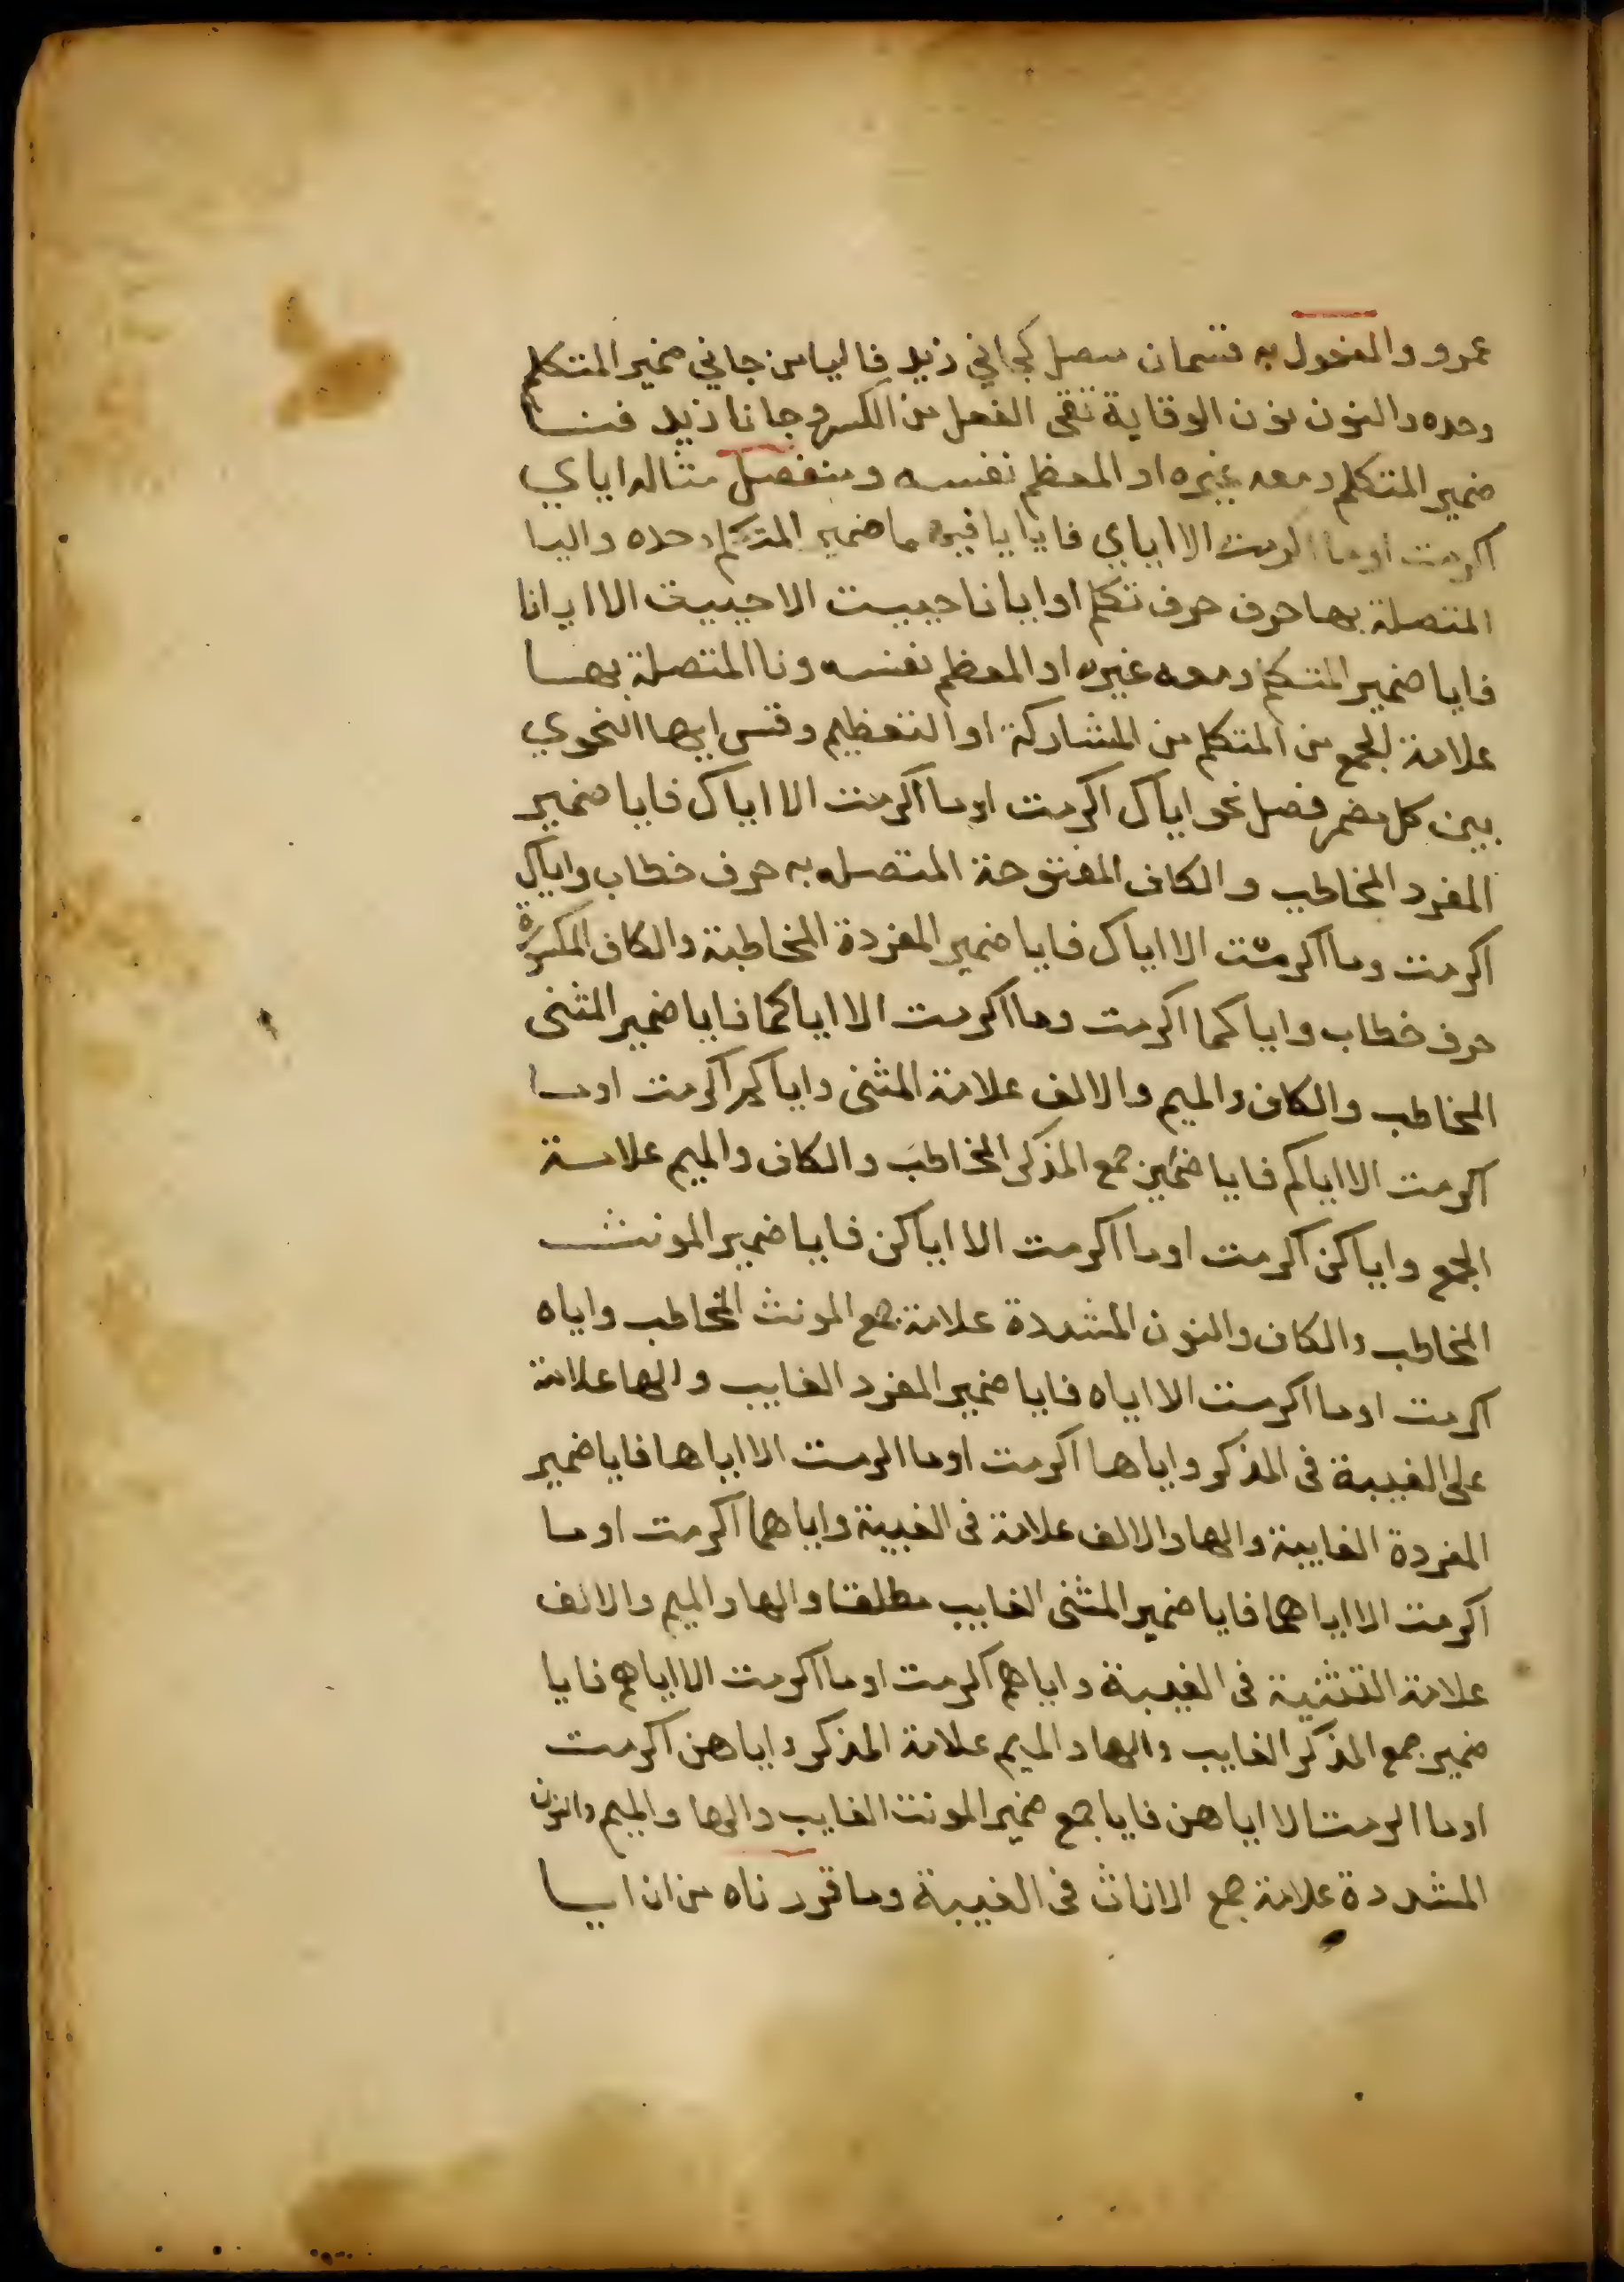 عمرو والمفعول به قسمان متصل كجاني زيد فاليا من جاني ضمير المتكلم
وحده والنون نون الوقاية تقى الفعل من الكسر وجانا زيد فنا
ضمير المتكلم ومعه غيره او المعظم نفسه ومنفصل مثاله اياي
اكرمت او ما اكرمت الا اياي فايا فيهما ضمير المتكلم وحده واليا
المتصلة بها حرف حرف تكلم او ايانا حييت الا حييت الا ايانا
فايا ضمير المتكلم ومعه غيره او المعظم نفسه ونا المتصلة بها
علامة الجمع من المتكلم من المشاركة او التعظيم وقس ايها النحوي
بين كل مضمر فصل نحو اياك اكرمت او ما اكرمت الا اياك فايا ضمير
المفرد المخاطب والكاف المفتوحة المتصله به حرف خطاب واياك
اكرمت وما اكرمت الا اياك فايا ضمير المفردة المخاطبة والكاف المكسورة
حرف خطاب واياكما اكرمت وما اكرمت الا اياكما فايا ضمير المثنى
المخاطب والكاف والميم والالف علامة المثنى واياكم اكرمت او ما
اكرمت الا اياكم فايا ضمير جمع المذكر المخاطب والكاف والميم علامة
الجمع واياكن اكرمت او ما اكرمت الا اياكن فايا ضمير المونث
المخاطب والكاف والنون المشددة علامة جمع المونث المخاطب واياه
اكرمت او ما اكرمت الا اياه فايا ضمير المفرد الغايب والها علامة
على الغيبة فى المذكر واياها اكرمت او ما اكرمت الا اياها فايا ضمير
المفردة الغايبة والها والالف علامة فى الغيبة واياهما اكرمت او ما
اكرمت الا اياهما فايا ضمير المثنى الغايب مطلقا والها والميم والالف
علامة التثنية فى الغيبة واياهم اكرمت او ما اكرمت الا اياهم فايا
ضمير جمع المذكر الغايب والها والميم علامة المذكر واياهن اكرمت
او ما اكرمت الا اياهن فايا جمع ضمير المونث الغايب والها والميم والنون
المشددة علامة جمع الاناث فى الغيبة وما قررناه من ان ايا